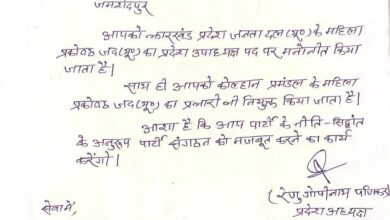 जमशेदपुर
आपको झारखंड प्रदेश जनता दल (यू०) के महिला
प्रकोष्ठ जद(यू०) का प्रदेश उपाध्यक्ष पद पर मनोनीत किया
जाता है।
साथ ही आपको कोल्हान प्रमंडल के महिला
प्रकोष्ठ जद(यू०) का प्रभारी भी नियुक्त किया जाता है।
आशा है कि आप पार्टी के नीति-सिद्धांत
के अनुरूप पार्टी संगठन को मजबूत करने का कार्य
करेंगी।
(रेणु गोपीनाथ पणिकर)
प्रदेश अध्यक्ष
सेवा में,